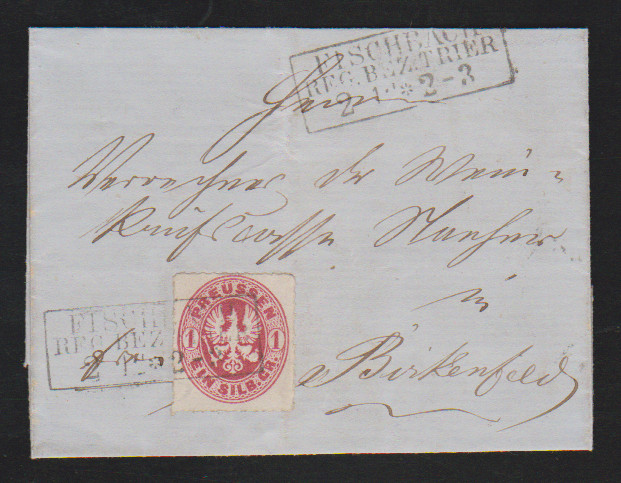 FISCHBACH
REG. BEZ. TRIER
2 1 * 2-3
Herrn
Verrechner der Wein-
kaufscasse
in
Birkenfeld
FISCH
REG. BEZ.
2 1 * 2
PREUSSEN
1 1
EIN SILB. GR.